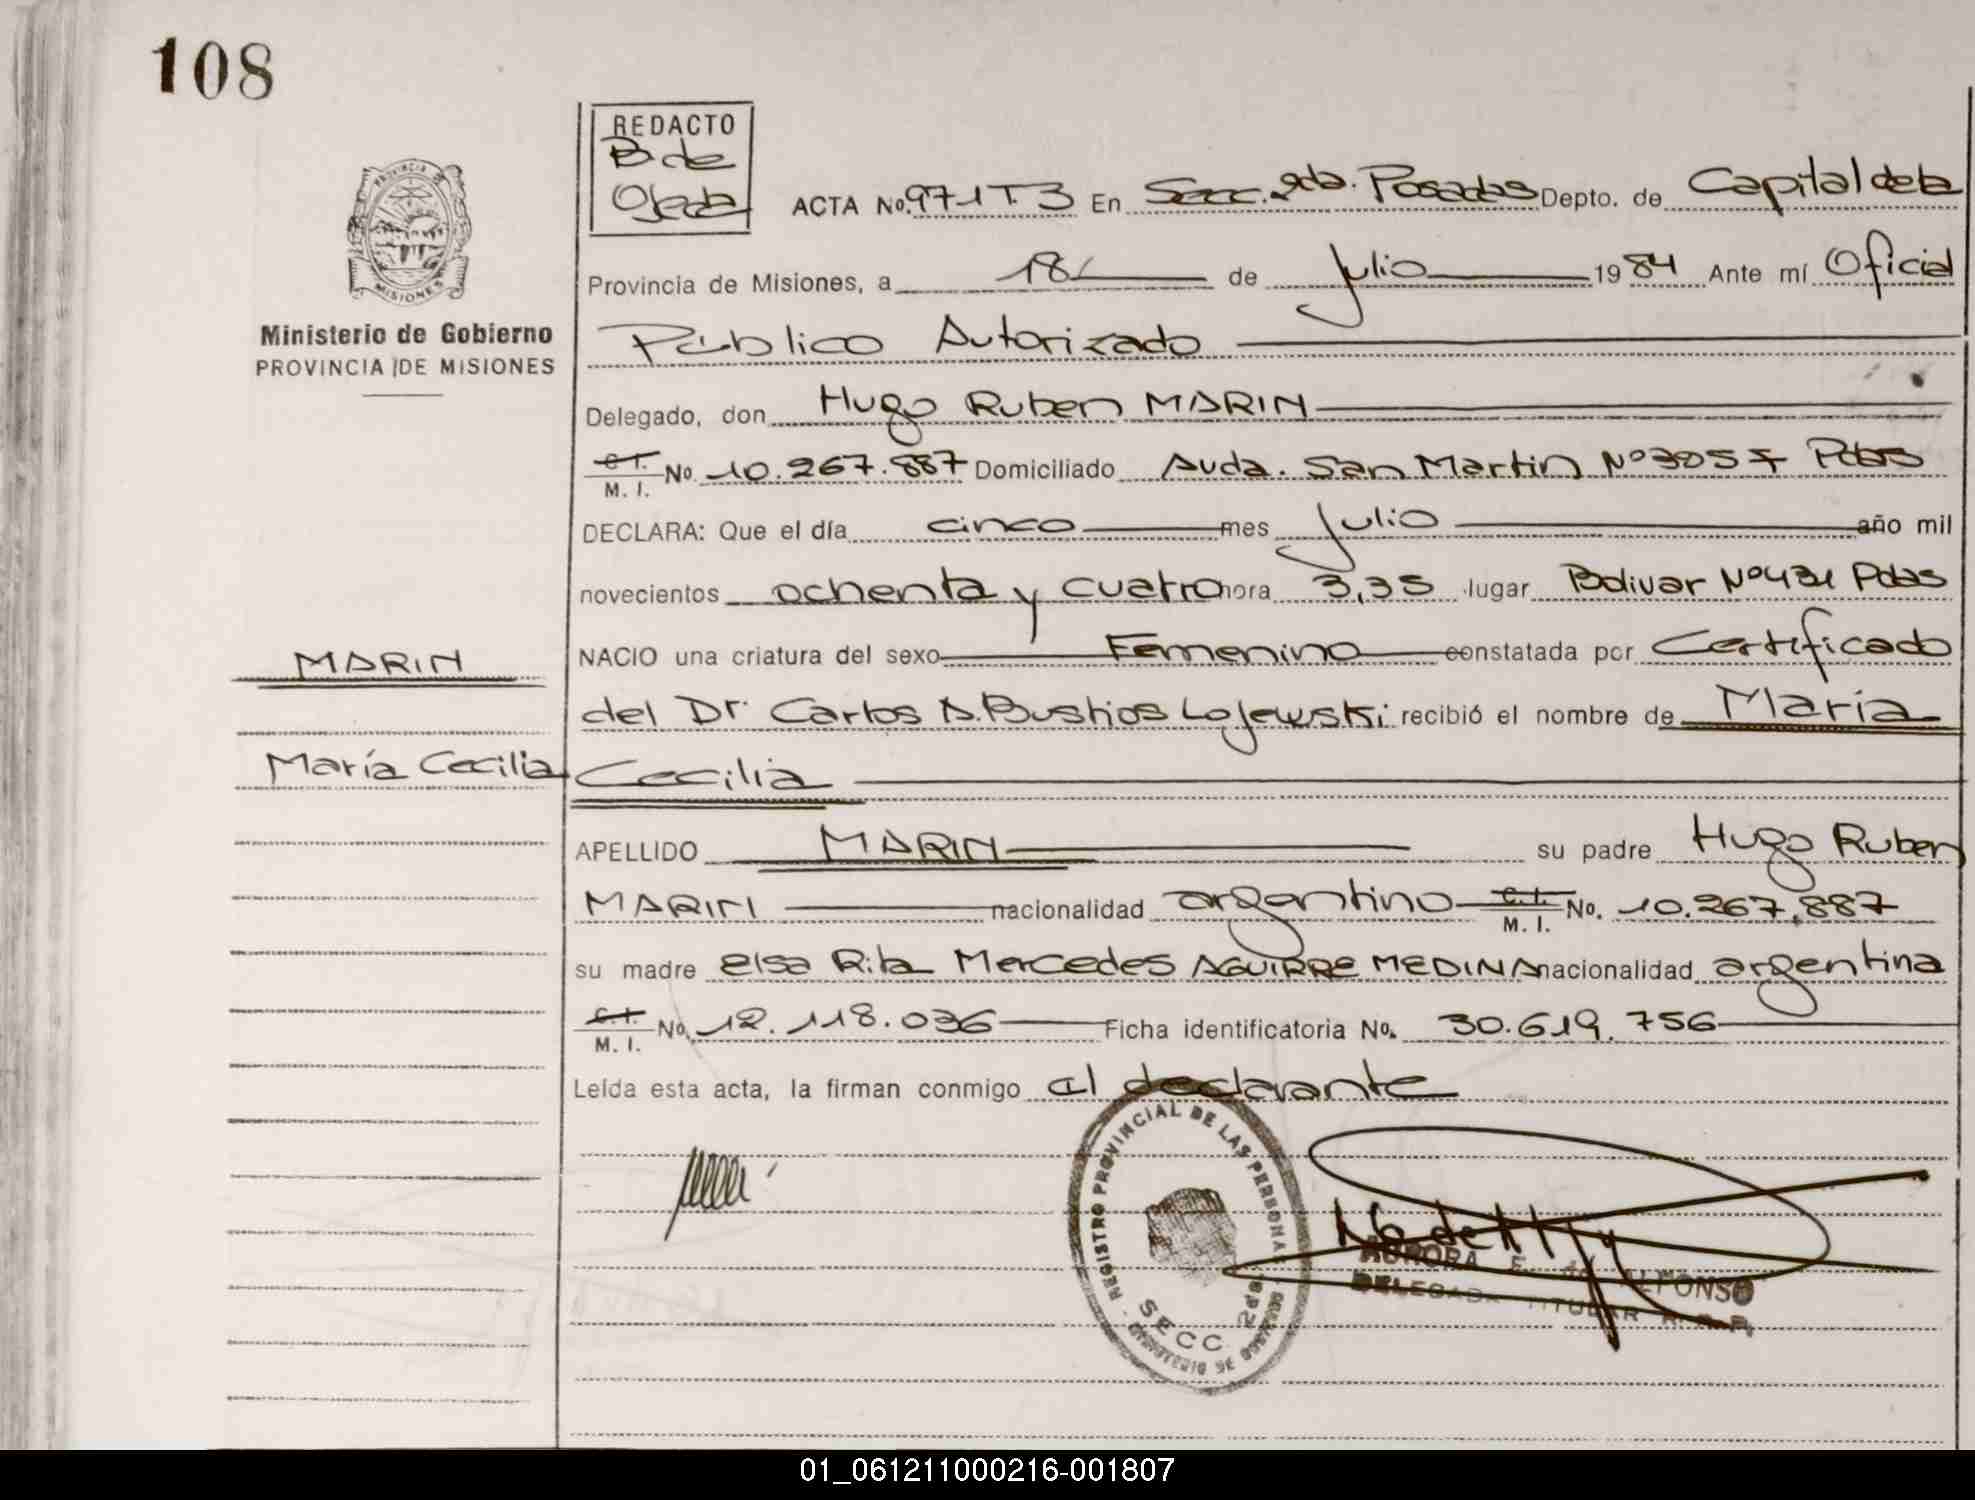 108
REDACTO
B de
Ojeda
PROVINCIA DE
MISIONES
Ministerio de Gobierno
PROVINCIA DE MISIONES
ACTA No. 971 T. 3 En Secc. 2da. Posadas Depto. de Capital de la
Provincia de Misiones, a 18 de Julio 1984 Ante mí Oficial
Público Autorizado
Delegado, don Hugo Ruben MARIN
C.I. M. I. No. 10.267.887 Domiciliado Avda. San Martin Nº3057 Pdas
DECLARA: Que el día cinco mes Julio año mil
novecientos ochenta y cuatro hora 3,35 lugar Bolivar Nº431 Pdas
MARIN
NACIO una criatura del sexo Femenino constatada por Certificado
del Dr. Carlos A. Bustios Lojewski recibió el nombre de María
María Cecilia
Cecilia
APELLIDO MARIN su padre Hugo Ruben
MARIN nacionalidad argentino C.I. M. I. No. 10.267.887
su madre elsa Rita Mercedes AGUIRRE MEDINA nacionalidad argentina
C.I. M. I. No. 12.118.036 Ficha identificatoria No. 30.619.756
Leída esta acta, la firman conmigo el declarante
REGISTRO PROVINCIAL DE LAS PERSONAS
SECC. 2da.
MINISTERIO DE GOBIERNO
AURORA E. de ALFONSO
DELEGADA TITULAR R. P. P.
01_061211000216-001807